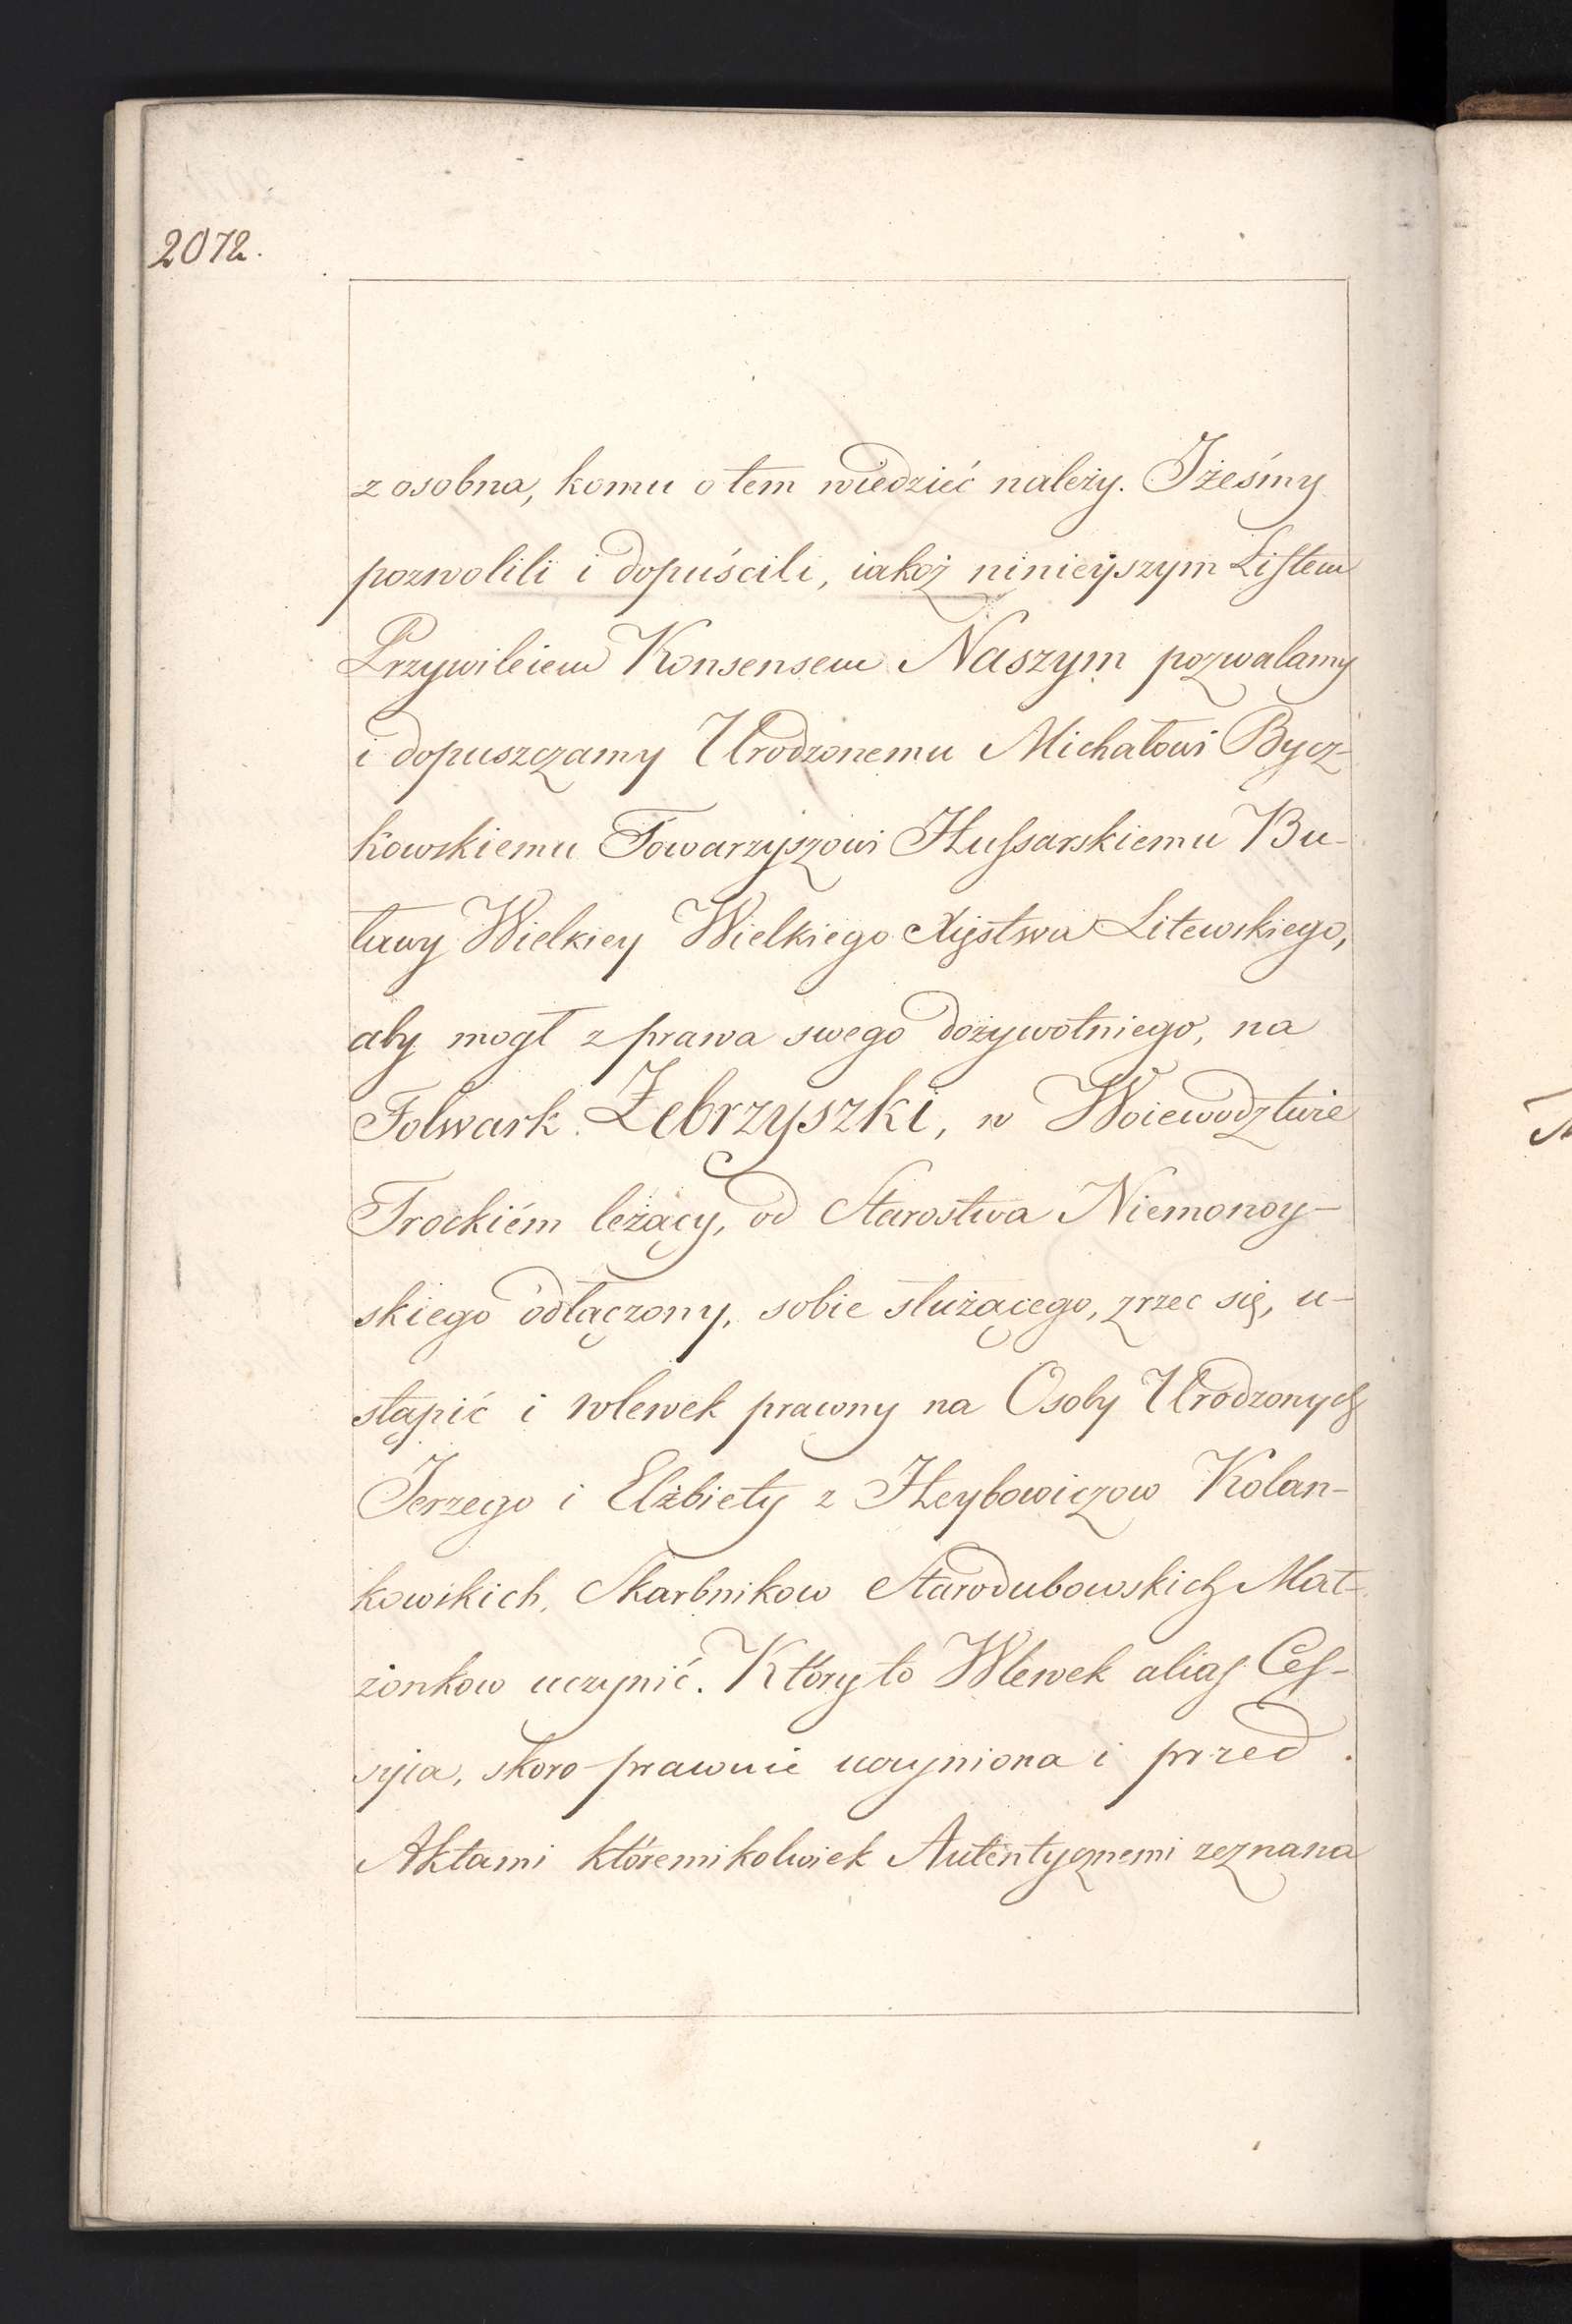 2072.
z osobna, komu o tem wiedzieć należy. Iżeśmy
pozwolili i dopuścili, iakoż ninieyszym Listem
Przywileiem Konsensem Naszym pozwalamy
i dopuszczamy Urodzonemu Michałowi Bycz-
kowskiemu Towarzyszowi Hussarskiemu Bu-
ławy Wielkiey Wielkiego Xięstwa Litewskiego,
aby mogł z prawa swego dożywotniego, na
Folwark Żebrzyszki, w Woiewodztwie
Trockiém leżący, od Starostwa Niemonoy-
skiego odłączony, sobie służącego, zrzec się, u-
stąpić i wlewek prawny na Osoby Urodzonych
Jerzego i Elżbiety z Heybowiczow Kolan-
kowskich, Skarbnikow Starodubowskich Mał-
żonkow uczynić. Który to Wlewek alias Ces-
syia, skoro prawnie uczyniona i przed
Aktami któremikolwiek Autentycznemi zeznana